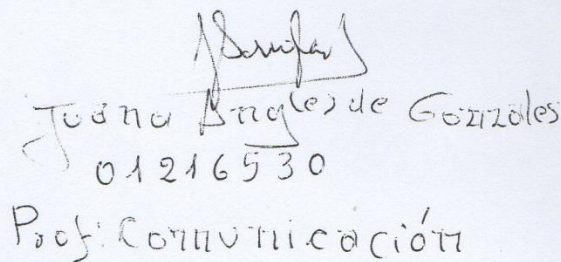 Juana Angles de Gonzales
01216530
Prof: Comunicación